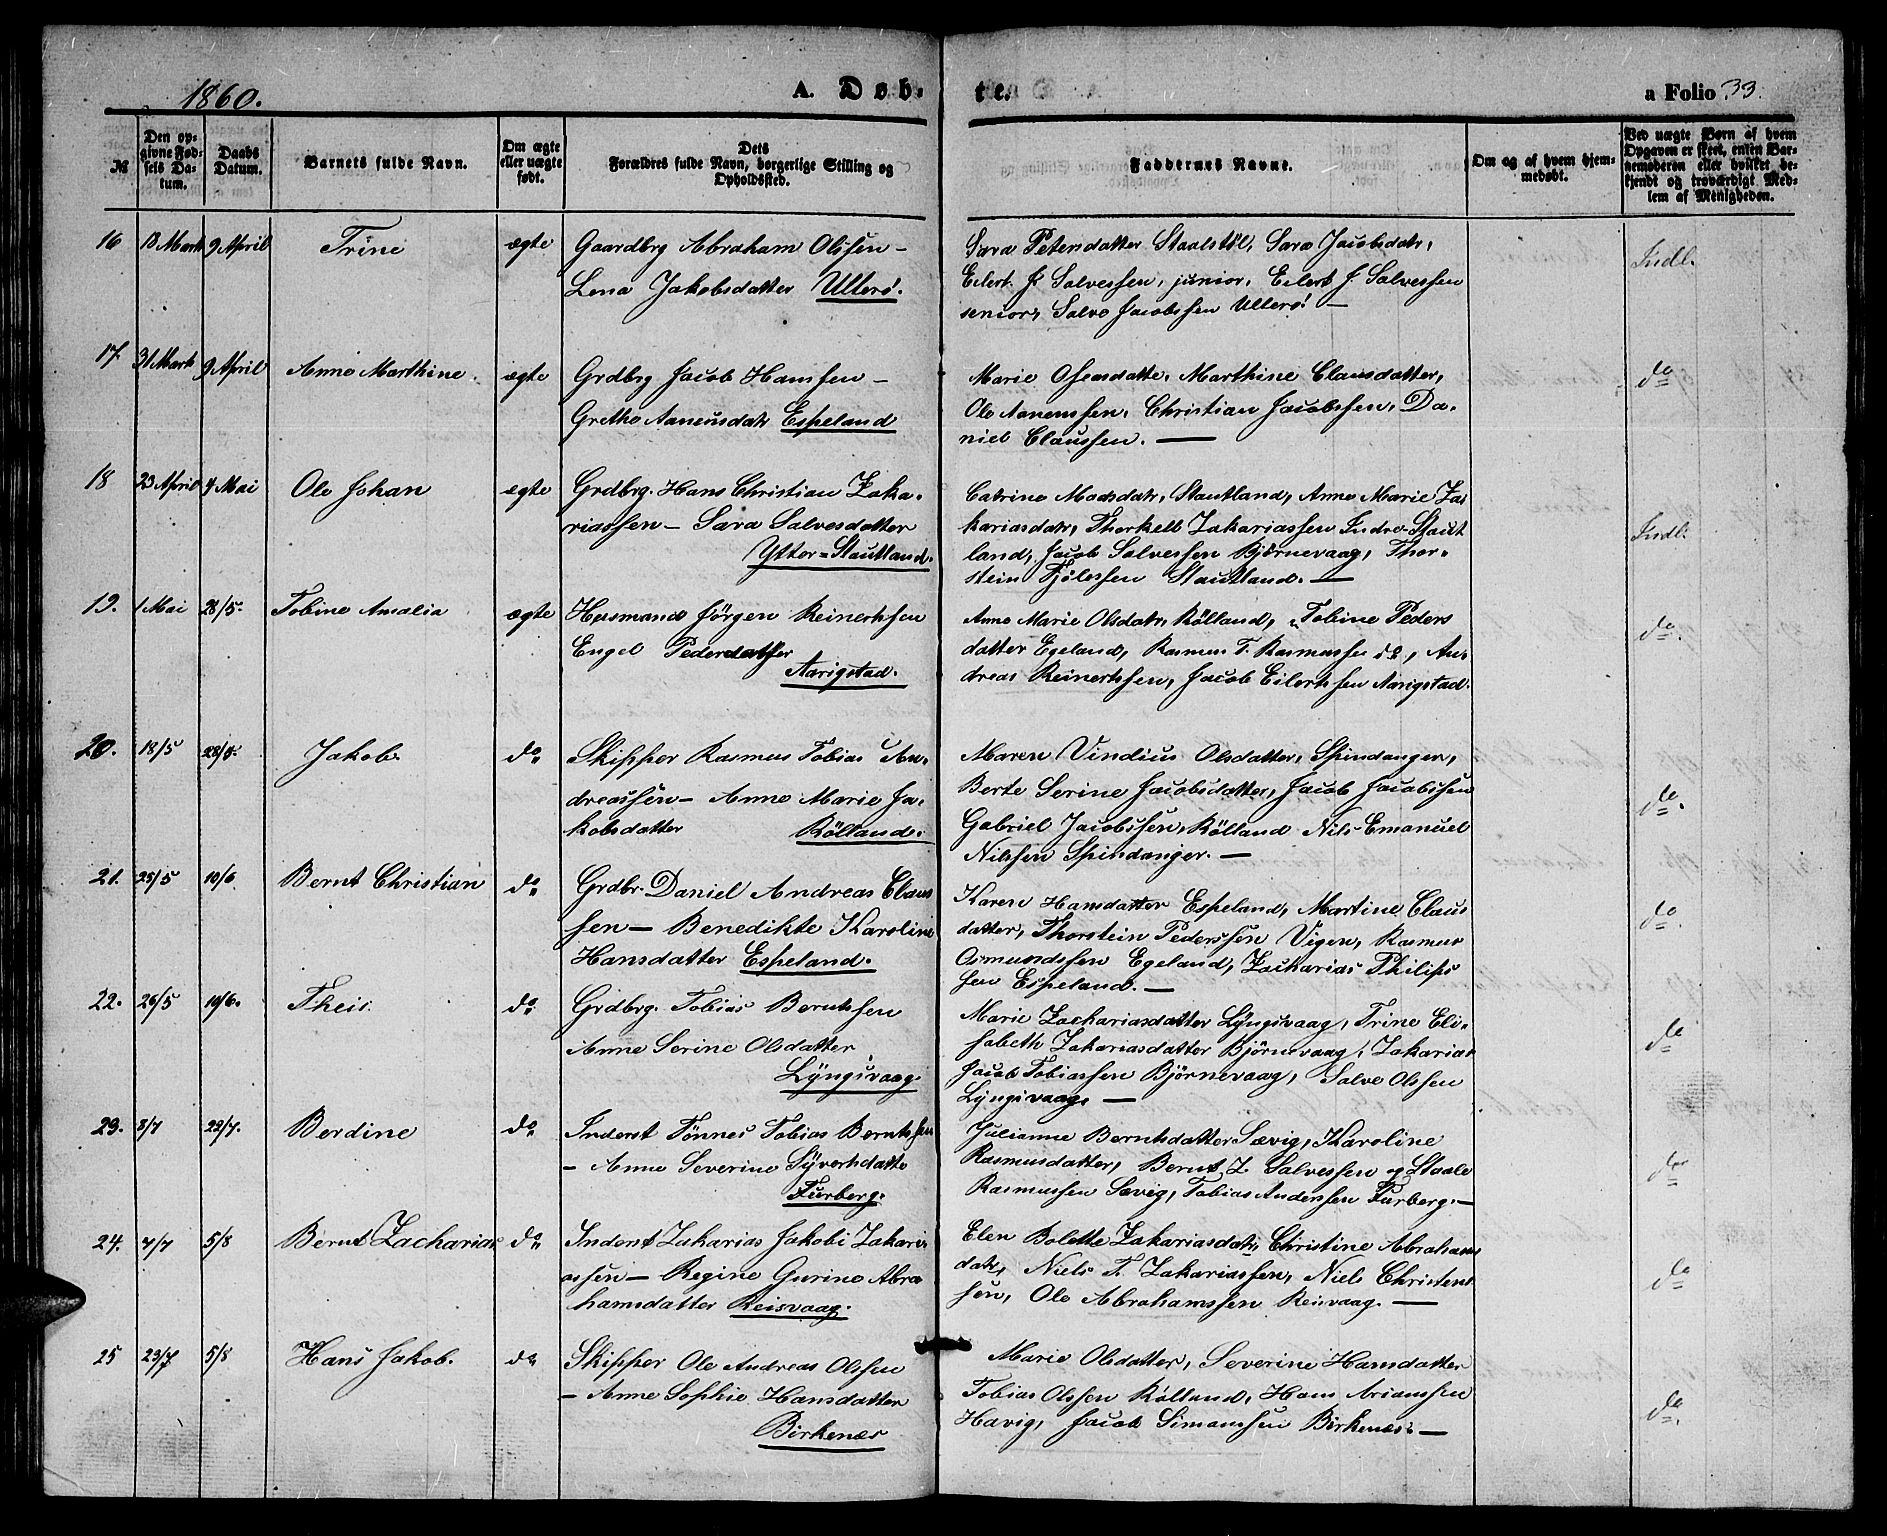 1860.
A. Døb-
te.
a Folio 33.
№
Den op-
givne Fød-
sels Da-
tum.
Daabs
Datum.
Barnets fulde Navn.
Om ægte
eller uægte
født.
Dets
Forældres fulde Navn, borgerlige Stilling og
Opholdssted.
Faddernes Navne.
Om og af hvem hjem-
medøbt.
Ved uægte Børn af hvem
Opgaven er skeet, enten Bar-
nemoderen eller hvilket be-
kjendt og troværdigt Med-
lem af Menigheden.
16 13 Marts 9 April Trine ægte Gaardbrg Abraham Olssen –
Lena Jakobsdatter Ullerø.
Sara Petersdatter Staalstøl, Sara Jacobsdatr,
Eilert J. Salvessen, junior, Eilert J. Salvessen
senior, Salve Jacobssen Ullerø! —
Indl.
17. 31 Marts 9 April Anne Marthine ægte Grdbrg Jacob Hanssen –
Grethe Aanensdatr Espeland
Marie Osensdatte, Marthine Clausdatter,
Ole Aanenssen, Christian Jacobssen, Da-
niel Claussen. —
do
18 23 April 4 Mai Ole Johan ægte Grdbrg. Hans Christian Zaka-
riassen – Sara Salvesdatter
Ytter=Stautland.
Catrine Madsdatr, Stautland, Anne Marie Za-
kariasdatr, Thorkell Zakariassen Indre-Staut
land, Jacob Salvessen Björnevaag, Thor-
stein Fjölessen Stautland. —
Indl.
19. 1 Mai 28/5. Tobine Amalia ægte Husmand Jörgen Reinertssen
Engel Pedersdatter
Aarigstad.
Anne Marie Olsdatr, Rölland, Tobine Peders
datter Egeland, Rasmus T. Rasmussen do, An-
dreas Reinertssen, Jacob Eilertssen Aarigstad.
do.
20. 18/5 28/5. Jakob. do Skipper Rasmus Tobias An-
dreassen – Anne Marie Ja-
kobsdatter Rölland.
Maren Vindius Olsdatter, Spindanger,
Berte Serine Jacobsdatter, Jacob Jacobssen
Gabriel Jacobssen, Rölland Nils Emanuel
Nilssen Spindanger. —
do.
21. 25/5 10/6 Bernt Christian do Grdbr. Daniel Andreas Claus
sen – Benedikte Karoline
Hansdatter Espeland.
Karen Hansdatter Espeland, Martine Claus
datter, Thorstein Pederssen Vigen, Rasmus
Osmundssen Egeland, Zackarias Philips
sen Espeland. —
do.
22. 26/5 10/6. Theis. do Grdbrg. Tobias Berntssen
Anne Serine Olsdatter
Lyngsvaag.
Marie Zachariasdatter Lyngsvaag, Trine Eli-
sabeth Zakariasdatter Björnevaag, Zakarias
Jacob Tobiassen Björnevaag, Salve Olssen
Lyngsvaag. —
do
23. 8/7 22/7. Berdine do Inderst Tönnes Tobias Berntssen
– Anne Severine Syvertsdatte
Furberg.
Julianne Berntsdatter Sævig, Karoline
Rasmusdatter, Bernt Z. Salvessen og Staale
Rasmussen Sævig, Tobias Anderssen Furberg. —
do
24. 7/7 5/8 Bernt Zacharias do Inderst Zakarias Jakobi Zakari-
assen – Regine Gurine Abra
hamsdatter Reisvaag.
Elen Bolette Zakariasdatr, Christine Abrahams
datr, Niels T. Zakariassen, Niels Christens
sen, Ole Abrahamssen Reisvaag. —
do
25 23/7 5/8 Hans Jakob. do Skipper Ole Andreas Olssen
– Anne Sophie Hansdatter
Birkenæs
Marie Olsdatter, Severine Hansdatter
Tobias Olssen Rölland, Hans Arianssen
Havig, Jacob Simonssen Birkenæs. —
do.